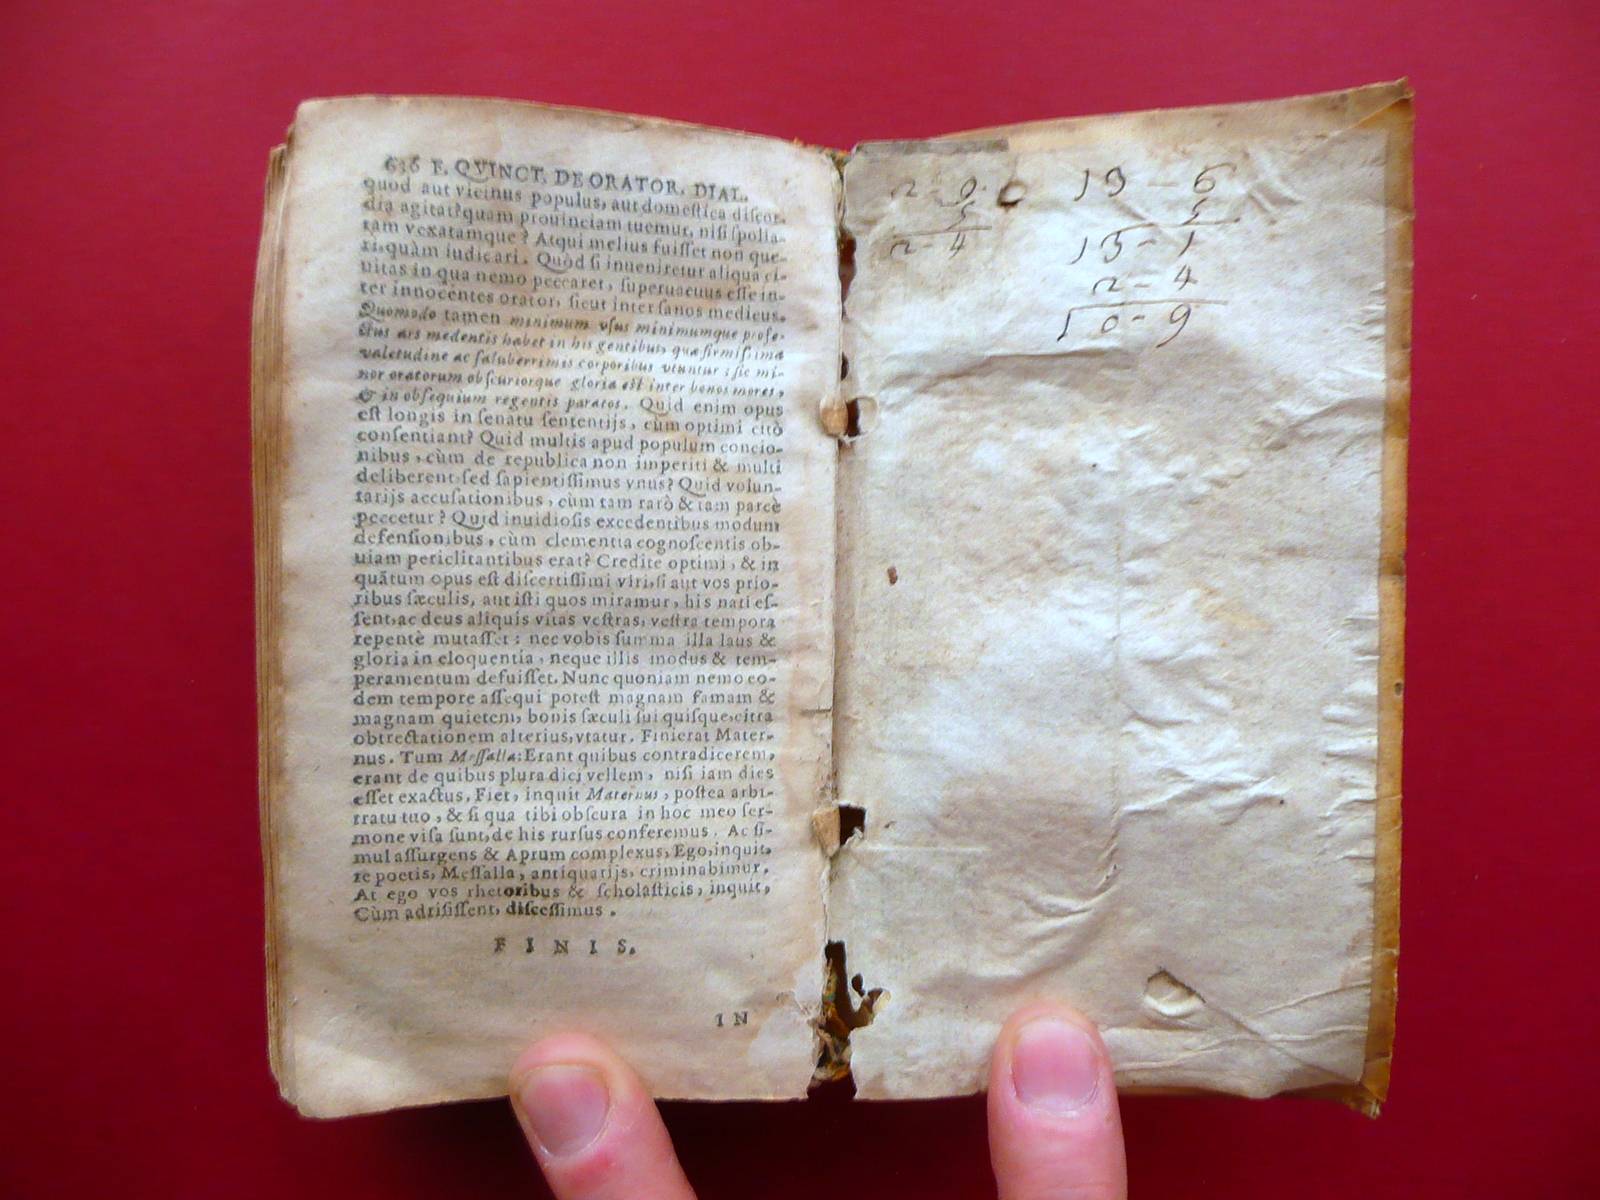 636 F. QVINCT. DE ORATOR. DIAL.
quod aut vicinus populus, aut domeſtica diſcor-
dia agitat? quam prouinciam tuemur, niſi ſpolia-
tam vexatamque? Atqui melius fuiſſet non que-
ri, quàm iudicari. Quòd ſi inueniretur aliqua ci-
uitas in qua nemo peccaret, ſuperuacuus eſſe in-
ter innocētes orator, ſicut inter ſanos medicus.
Quomodo tamen minimum vſus minimumque profe-
ctus ars medentis habet in his gentibus, quæ firmiſsima
valetudine ac ſaluberrimis corporibus vtuntur: ſic mi-
nor oratorum obſcuriorque gloria eſt inter bonos mores,
& in obſequium regentis paratos. Quid enim opus
eſt longis in ſenatu ſententijs, cùm optimi citò
conſentiant? Quid multis apud populum concio-
nibus, cùm de republica non imperiti & multi
deliberent, ſed ſapientiſſimus vnus? Quid volun-
tarijs accuſationibus, cùm tam rarò & tam parcè
peccetur? Quid inuidioſis excedentibus modum
defenſionibus, cùm clementia cognoſcentis ob-
uiam periclitantibus erat? Credite optimi, & in
quātum opus eſt diſertiſſimi viri, ſi aut vos prio-
ribus ſæculis, aut iſti quos miramur, his nati eſ-
ſent, ac deus aliquis vitas veſtras, veſtra tempora
repentè mutaſſet: nec vobis ſumma illa laus &
gloria in eloquentia, neque illis modus & tem-
peramentum defuiſſet. Nunc quoniam nemo eo-
dem tempore aſſequi poteſt magnam famam &
magnam quietem, bonis ſæculi ſui quiſque, citra
obtrectationem alterius, vtatur. Finierat Mater-
nus. Tum Meſſalla: Erant quibus contradicerem,
erant de quibus plura dici vellem, niſi iam dies
eſſet exactus. Fiet, inquit Maternus, poſtea arbi-
tratu tuo, & ſi qua tibi obſcura in hoc meo ſer-
mone viſa ſunt, de his rurſus conferemus. Ac ſi-
mul aſſurgens & Aprum complexus, Ego, inquit,
te poetis, Meſſalla, antiquarijs, criminabimur.
At ego vos rhetoribus & ſcholaſticis, inquit,
Cùm adriſiſſent, diſceſſimus.
FINIS.
IN
2 - 9
5
2 - 4
13 - 6
5
13 - 1
2 - 4
10 - 9